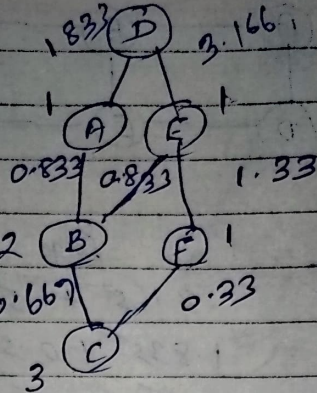 1.833 D 3.166
1 A E 1
0.833 0.833 1.33
2 B F 1
0.667 0.33
C
3